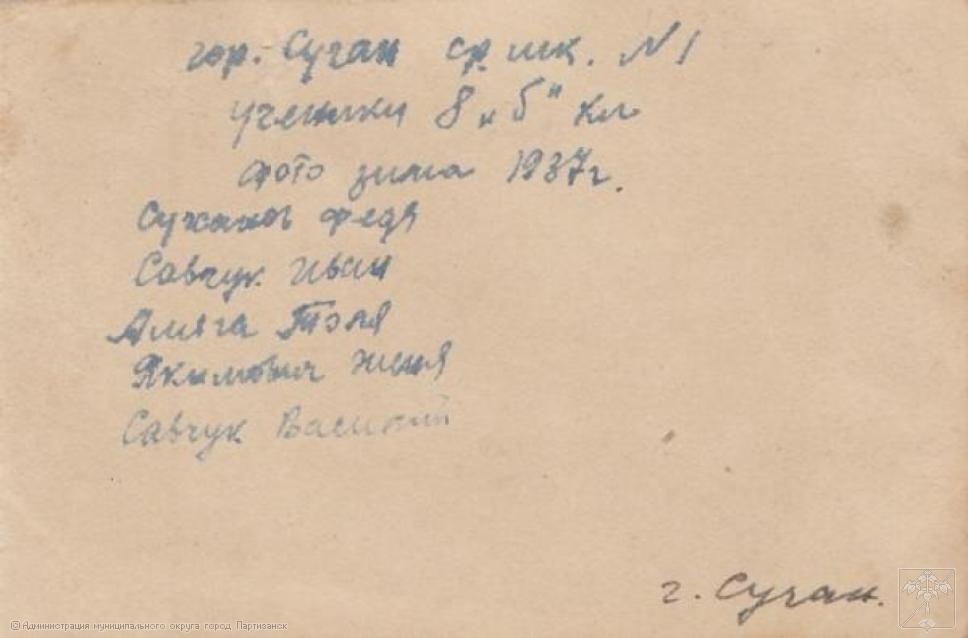 гор. Сучан ср. шк. N 1
ученики 8 „б" кл
фото зима 1937г.
Суханов Федя
Савчук Иван
Толя
Якимович Женя
Савчук Василий
г. Сучан.
© Администрация муниципального округа город Партизанск